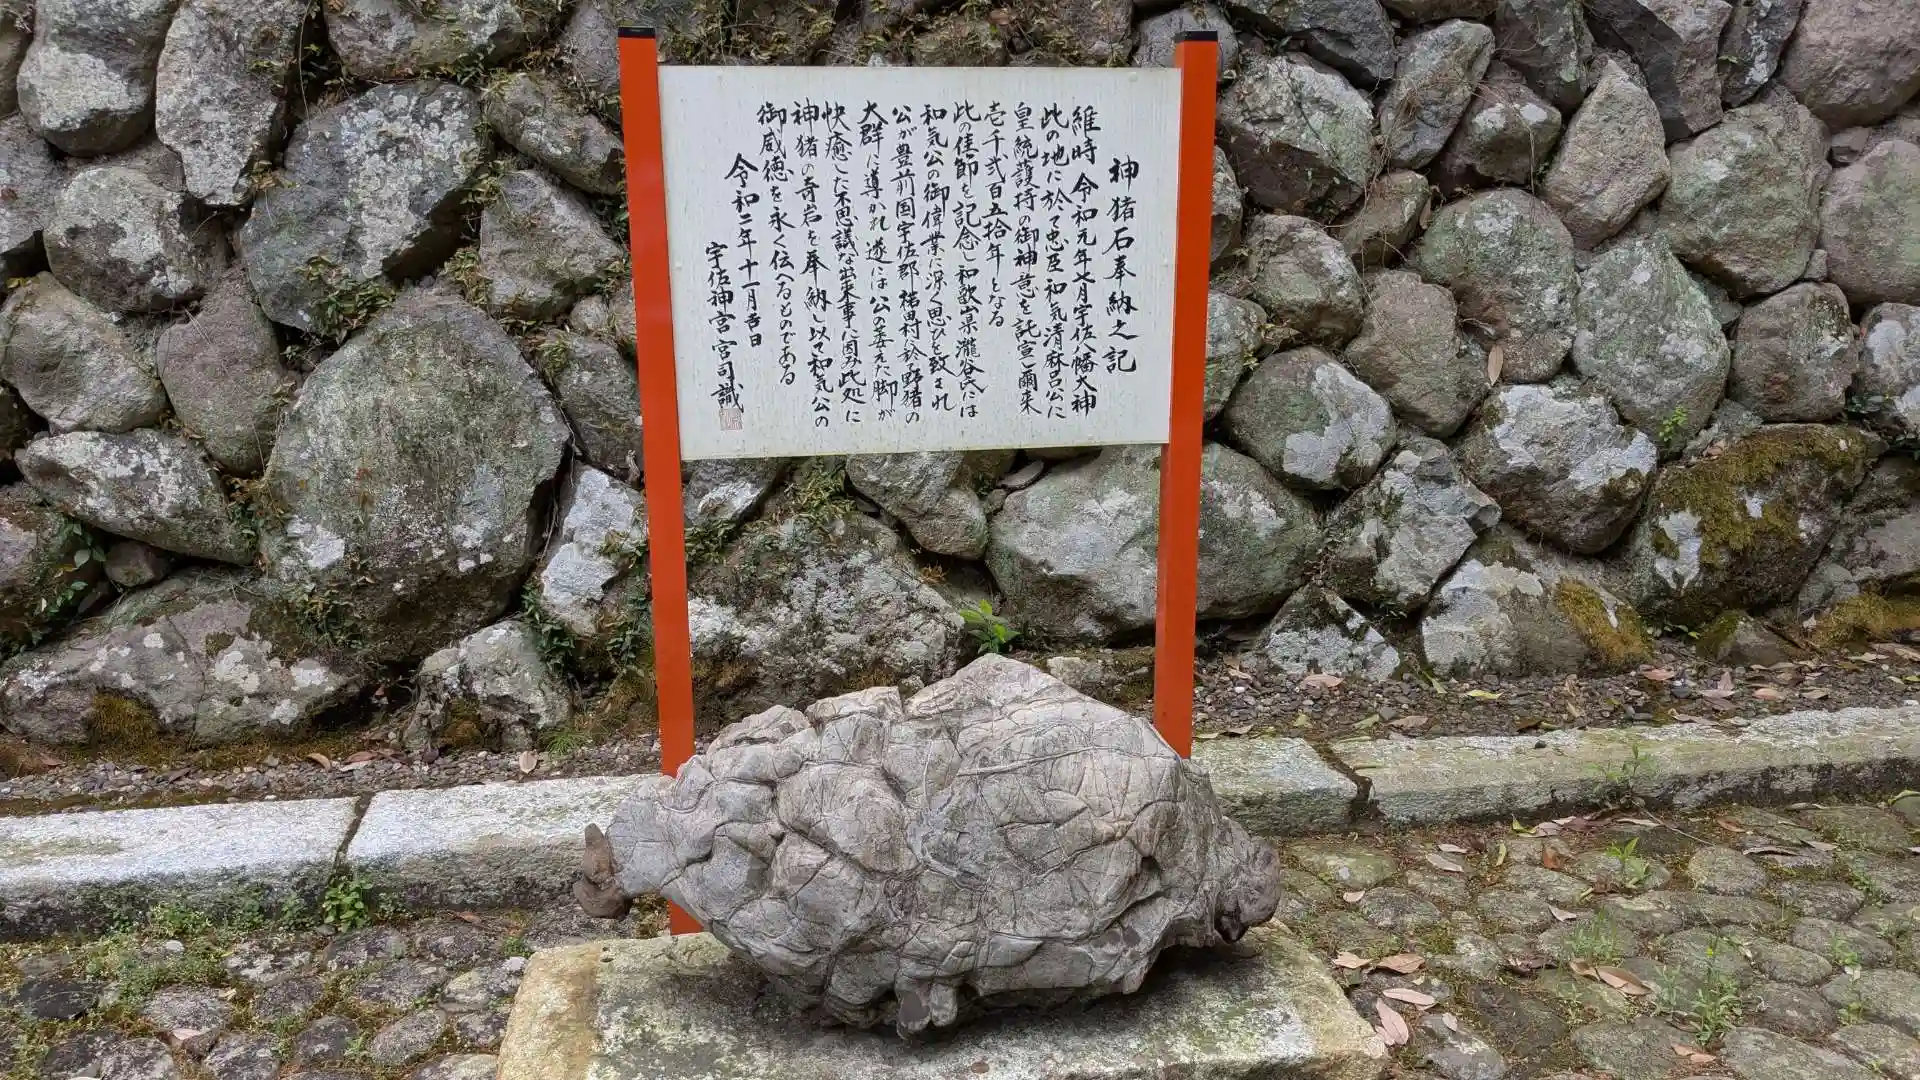 神猪石奉納之記
維時 令和元年七月宇佐八幡大神
此の地に於て忠臣和気清麻呂公に
皇統護持の御神意を託宣し爾来
壱千弐百五拾年となる
此の佳節を記念し和歌山県瀧谷氏には
和気公の御偉業に深く思ひを致され
公が豊前国宇佐郡楉田村に於て野猪の
大群に導かれ遂には公の萎えた脚が
快癒した不思議な出来事に因み此処に
神猪の奇岩を奉納し以て和気公の
御威徳を永く伝へるものである
令和二年十一月吉日
宇佐神宮宮司 識